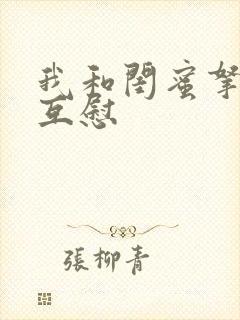 我和閨蜜拏
互慰
張柳青